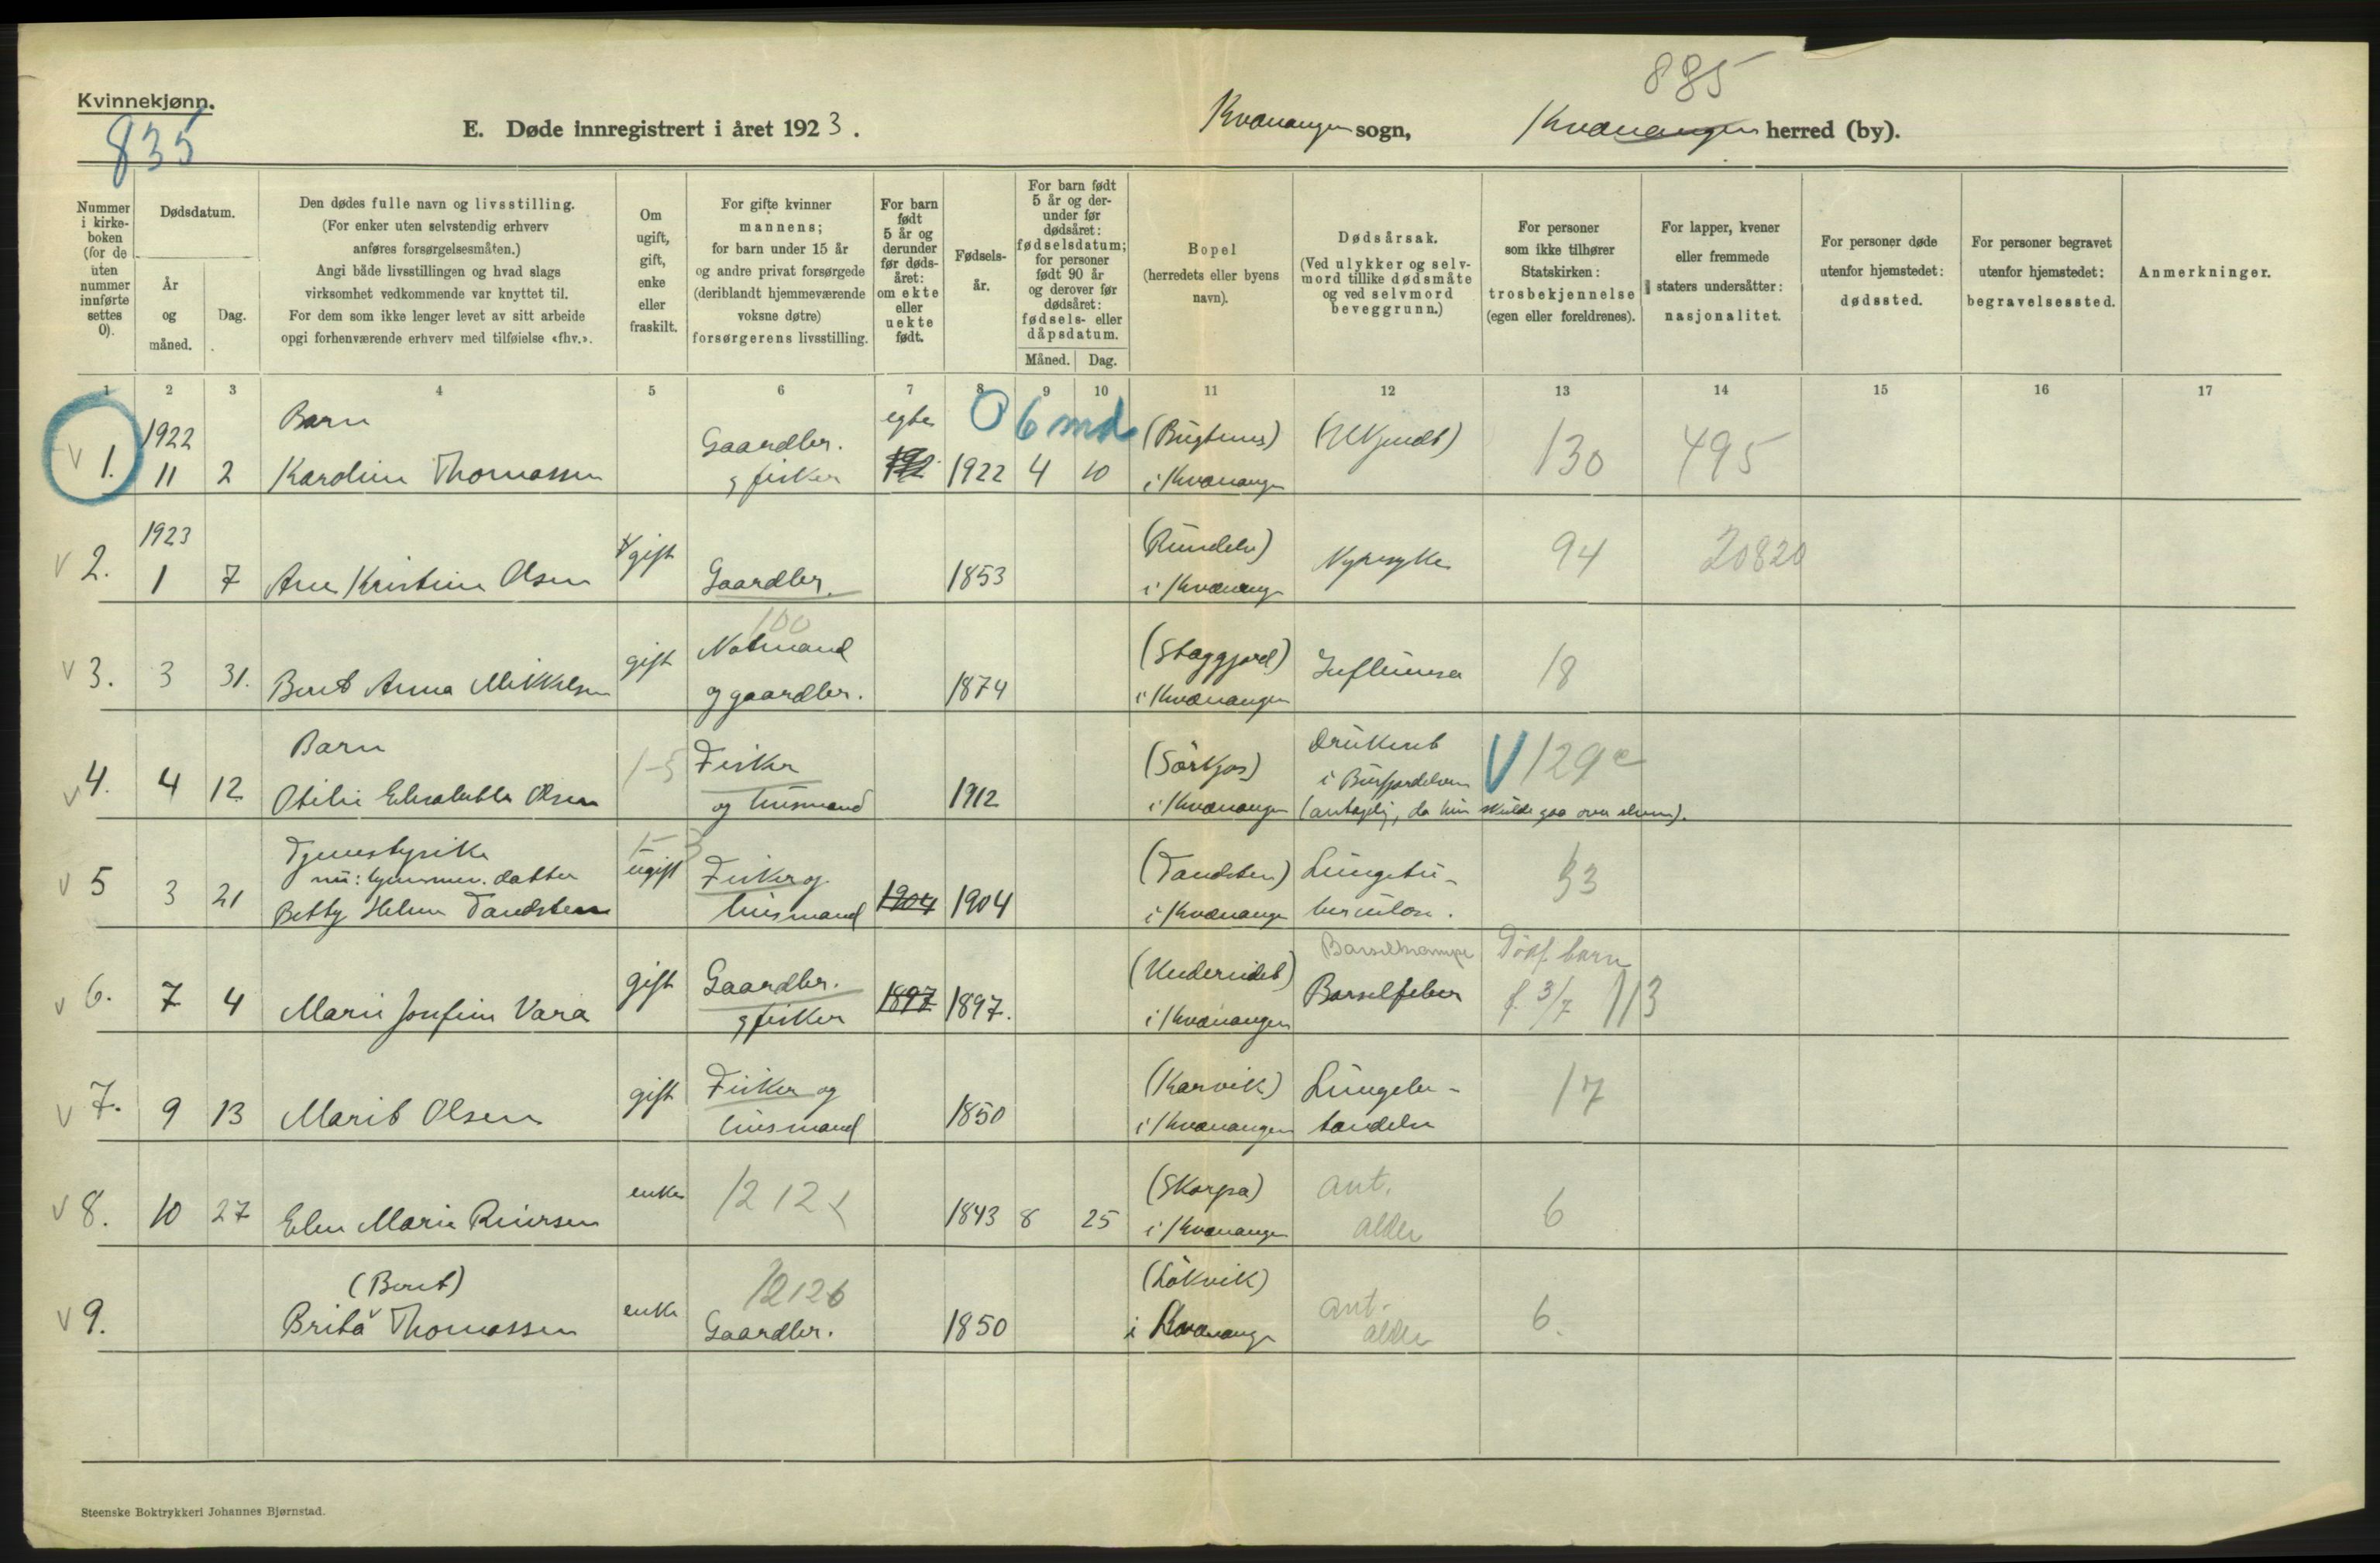 885
Kvinnekjønn.
835
E. Døde innregistrert i året 1923.
Kvænangen sogn,
Kvænangen herred (by).
Nummer i kirke-boken (for de uten nummer innførte settes 0).
Dødsdatum.
År og måned.
Dag.
Den dødes fulle navn og livsstilling.
(For enker uten selvstendig erhverv anføres forsørgelsesmåten.)
Angi både livsstillingen og hvad slags virksomhet vedkommende var knyttet til.
For dem som ikke lenger levet av sitt arbeide opgi forhenværende erhverv med tilføielse «fhv.».
Om ugift, gift, enke eller fraskilt.
For gifte kvinner mannens; for barn under 15 år og andre privat forsørgede (deriblandt hjemmeværende voksne døtre) forsørgerens livsstilling.
For barn født 5 år og derunder før døds-året: om ekte eller uekte født.
Fødsels-år.
For barn født 5 år og der-under før dødsåret: fødselsdatum; for personer født 90 år og derover før dødsåret: fødsels- eller dåpsdatum.
Måned. Dag.
Bopel (herredets eller byens navn).
Dødsårsak. (Ved ulykker og selv-mord tillike dødsmåte og ved selvmord beveggrunn.)
For personer som ikke tilhører Statskirken: trosbekjennelse (egen eller foreldrenes).
For lapper, kvener eller fremmede staters undersåtter: nasjonalitet.
For personer døde utenfor hjemstedet: dødssted.
For personer begravet utenfor hjemstedet: begravelsessted.
Anmerkninger.
1 2 3 4 5 6 7 8 9 10 11 12 13 14 15 16 17
1922 Barn egte 0 6 md (Ukjendt)
V 1. 11 2 Karoline Thomassen Gaardbr. g fisker 1922 4 10 i Kvænangen 130 495
1923
V 2. 1 7 Ane Kristine Olsen gift Gaardbr. 1853 i Kvænangen Nyresyke 94 20820
100
V 3. 3 31. Berit Anna Mikkelsen gift Notmand og gaardbr. 1874 i Kvænangen Influensa 18
Barn
V 4. 4 12 Otilie Elisabeth Olsen 1-5 Fisker og husmand 1912 (Sørkjos) i Kvænangen Druknet i Burfjordelven V 129 e
(antagelig, da hun skulde gaa over elven).
Tjenestepike
nu: hjemmev. datter
V 5 3 21 Betty Helene Tandsten ugift Fisker og husmand 1904 1904 (Tandsten) i Kvænangen Lungetu-berkulose. 33
Død f. barn
V 6. 7 4 Marie Josefine Vara gift Gaardbr. g fisker 1897 1897. (Undereidet) i Kvænangen Barselfeber f. 3/7 113
V 7. 9 13 Marit Olsen gift Fisker og husmand 1850 (Karvik) i Kvænangen Lungebe-tændelse 17
V 8. 10 27 Elen Marie Reiersen enke 1212 1843 8 25 (Skorpa) i Kvænangen ant. alder 6
(Berit) 12126
V 9. Brita Thomassen enke Gaardbr. 1850 (Løkvik) i Kvænangen ant. alder 6.
Steenske Boktrykkeri Johannes Bjørnstad.